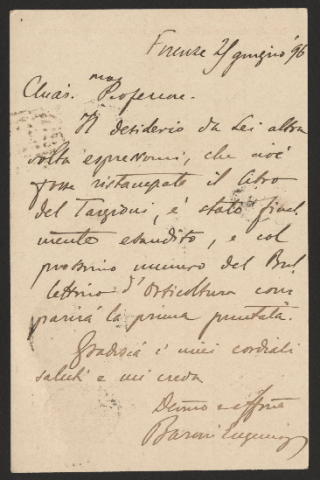 Firenze 25 giugno '96
Chiar.mo Professore.
Il desiderio da Lei altra
volta espressomi, che cioè
fosse ristampato il libro
del Targioni, è stato final
mente esaudito, e col
prossimo numero del Bul
lettino d'Orticoltura com
parirà la prima puntata.
Gradisca i miei cordiali
saluti e mi creda
Devmo e affmo
Baroni Eugenio